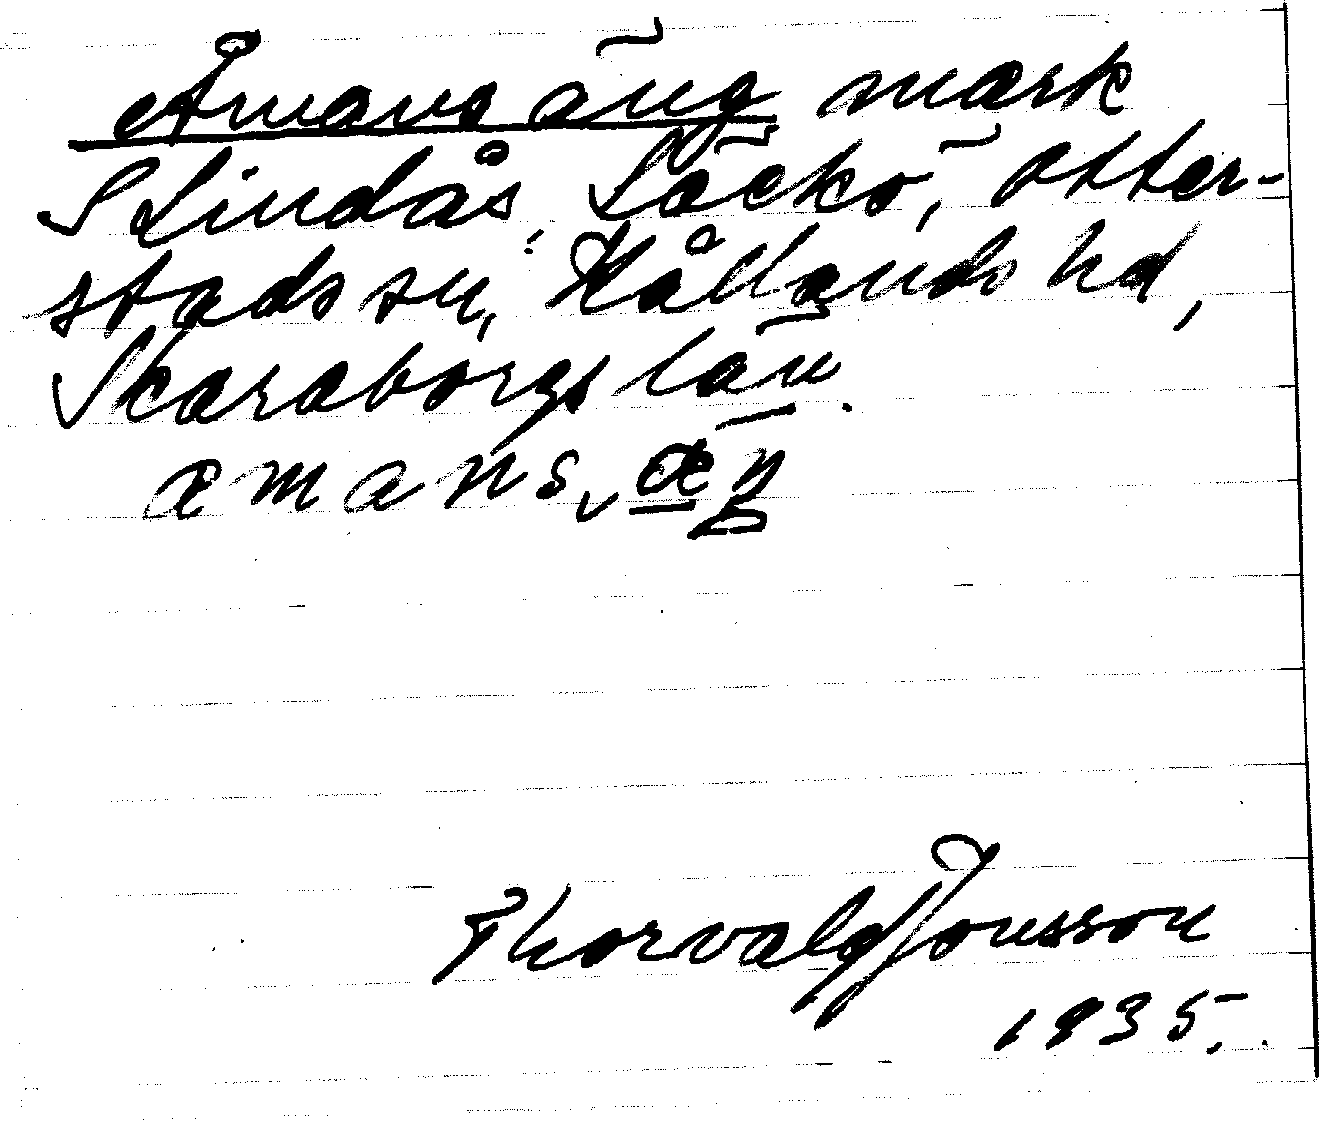 Åmans äng mark
S Lindås, Läckö, Otter-
stads sn, Kållands hd,
Skaraborgs län.
æmans,æŋ
Thorvald Jonsson
1935.